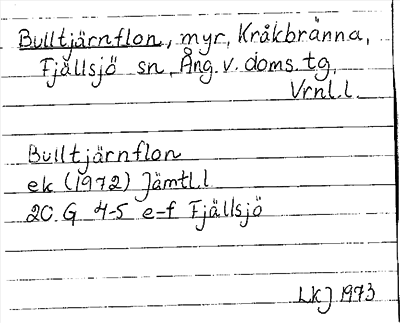 Bulltjärnflon, myr, Kråkbränna,
Fjällsjö sn, Ång. v. doms. tg,
Vrnl. l.
Bulltjärnflon
ek (1972) Jämtl. l
20 G 4-5 e-f Fjällsjö
LKJ 1973